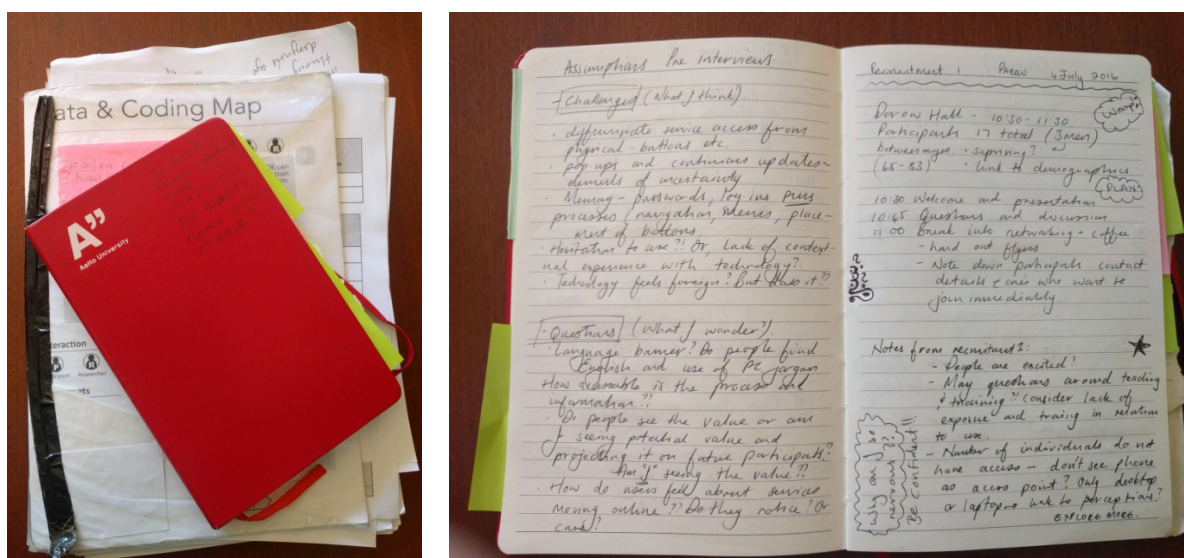 ata & Coding Map
A"
Aalto University
teraction
Researcher
Assumptions Pre Interviews
- Challenges (What I think).
• differentiate service access from
physical - buttons etc.
• pop-ups and continuous updates -
demands of uncertainty
• Memory - passwords, log-ins plus
processes (navigation, menus, place-
ment of buttons.
• Hesitation to use?! Or, lack of context-
ual experience with technology?.
• Technology feels foreign? But does it??
- Questions (What I wonder?).
• Language barrier? Do people find
English and use of PC jargon
How accessible is the process and
information??
• Do people see the value or am
I seeing potential value and
projecting it on future participants?
Am "I" seeing the value??
• How do users feel about services
moving online?? Do they notice? Or
care?
Recruitment 1 4 July 2016
Hall - 10:30 - 11:30
Participants 17 total (3 men)
between ages • suprising?
(65-83) • link to demographics
PLAN:
10:30 Welcome and presentation
10:45 Questions and discussion
11:00 Break into networking + coffee
- hand out flyers
- Note down participants contact
details & ones who want to
join immediately.
Notes from recruitment 1:
- People are excited!
- May questions around teaching
& training?! Consider lack of
exposure and traing in relation
to use.
- Number of individuals do not
have access - don't see phone
as access point? Only desktop
or laptops link to perceptions?
EXPLORE MORE.
Why am I so
nervous??
Be confident!!!